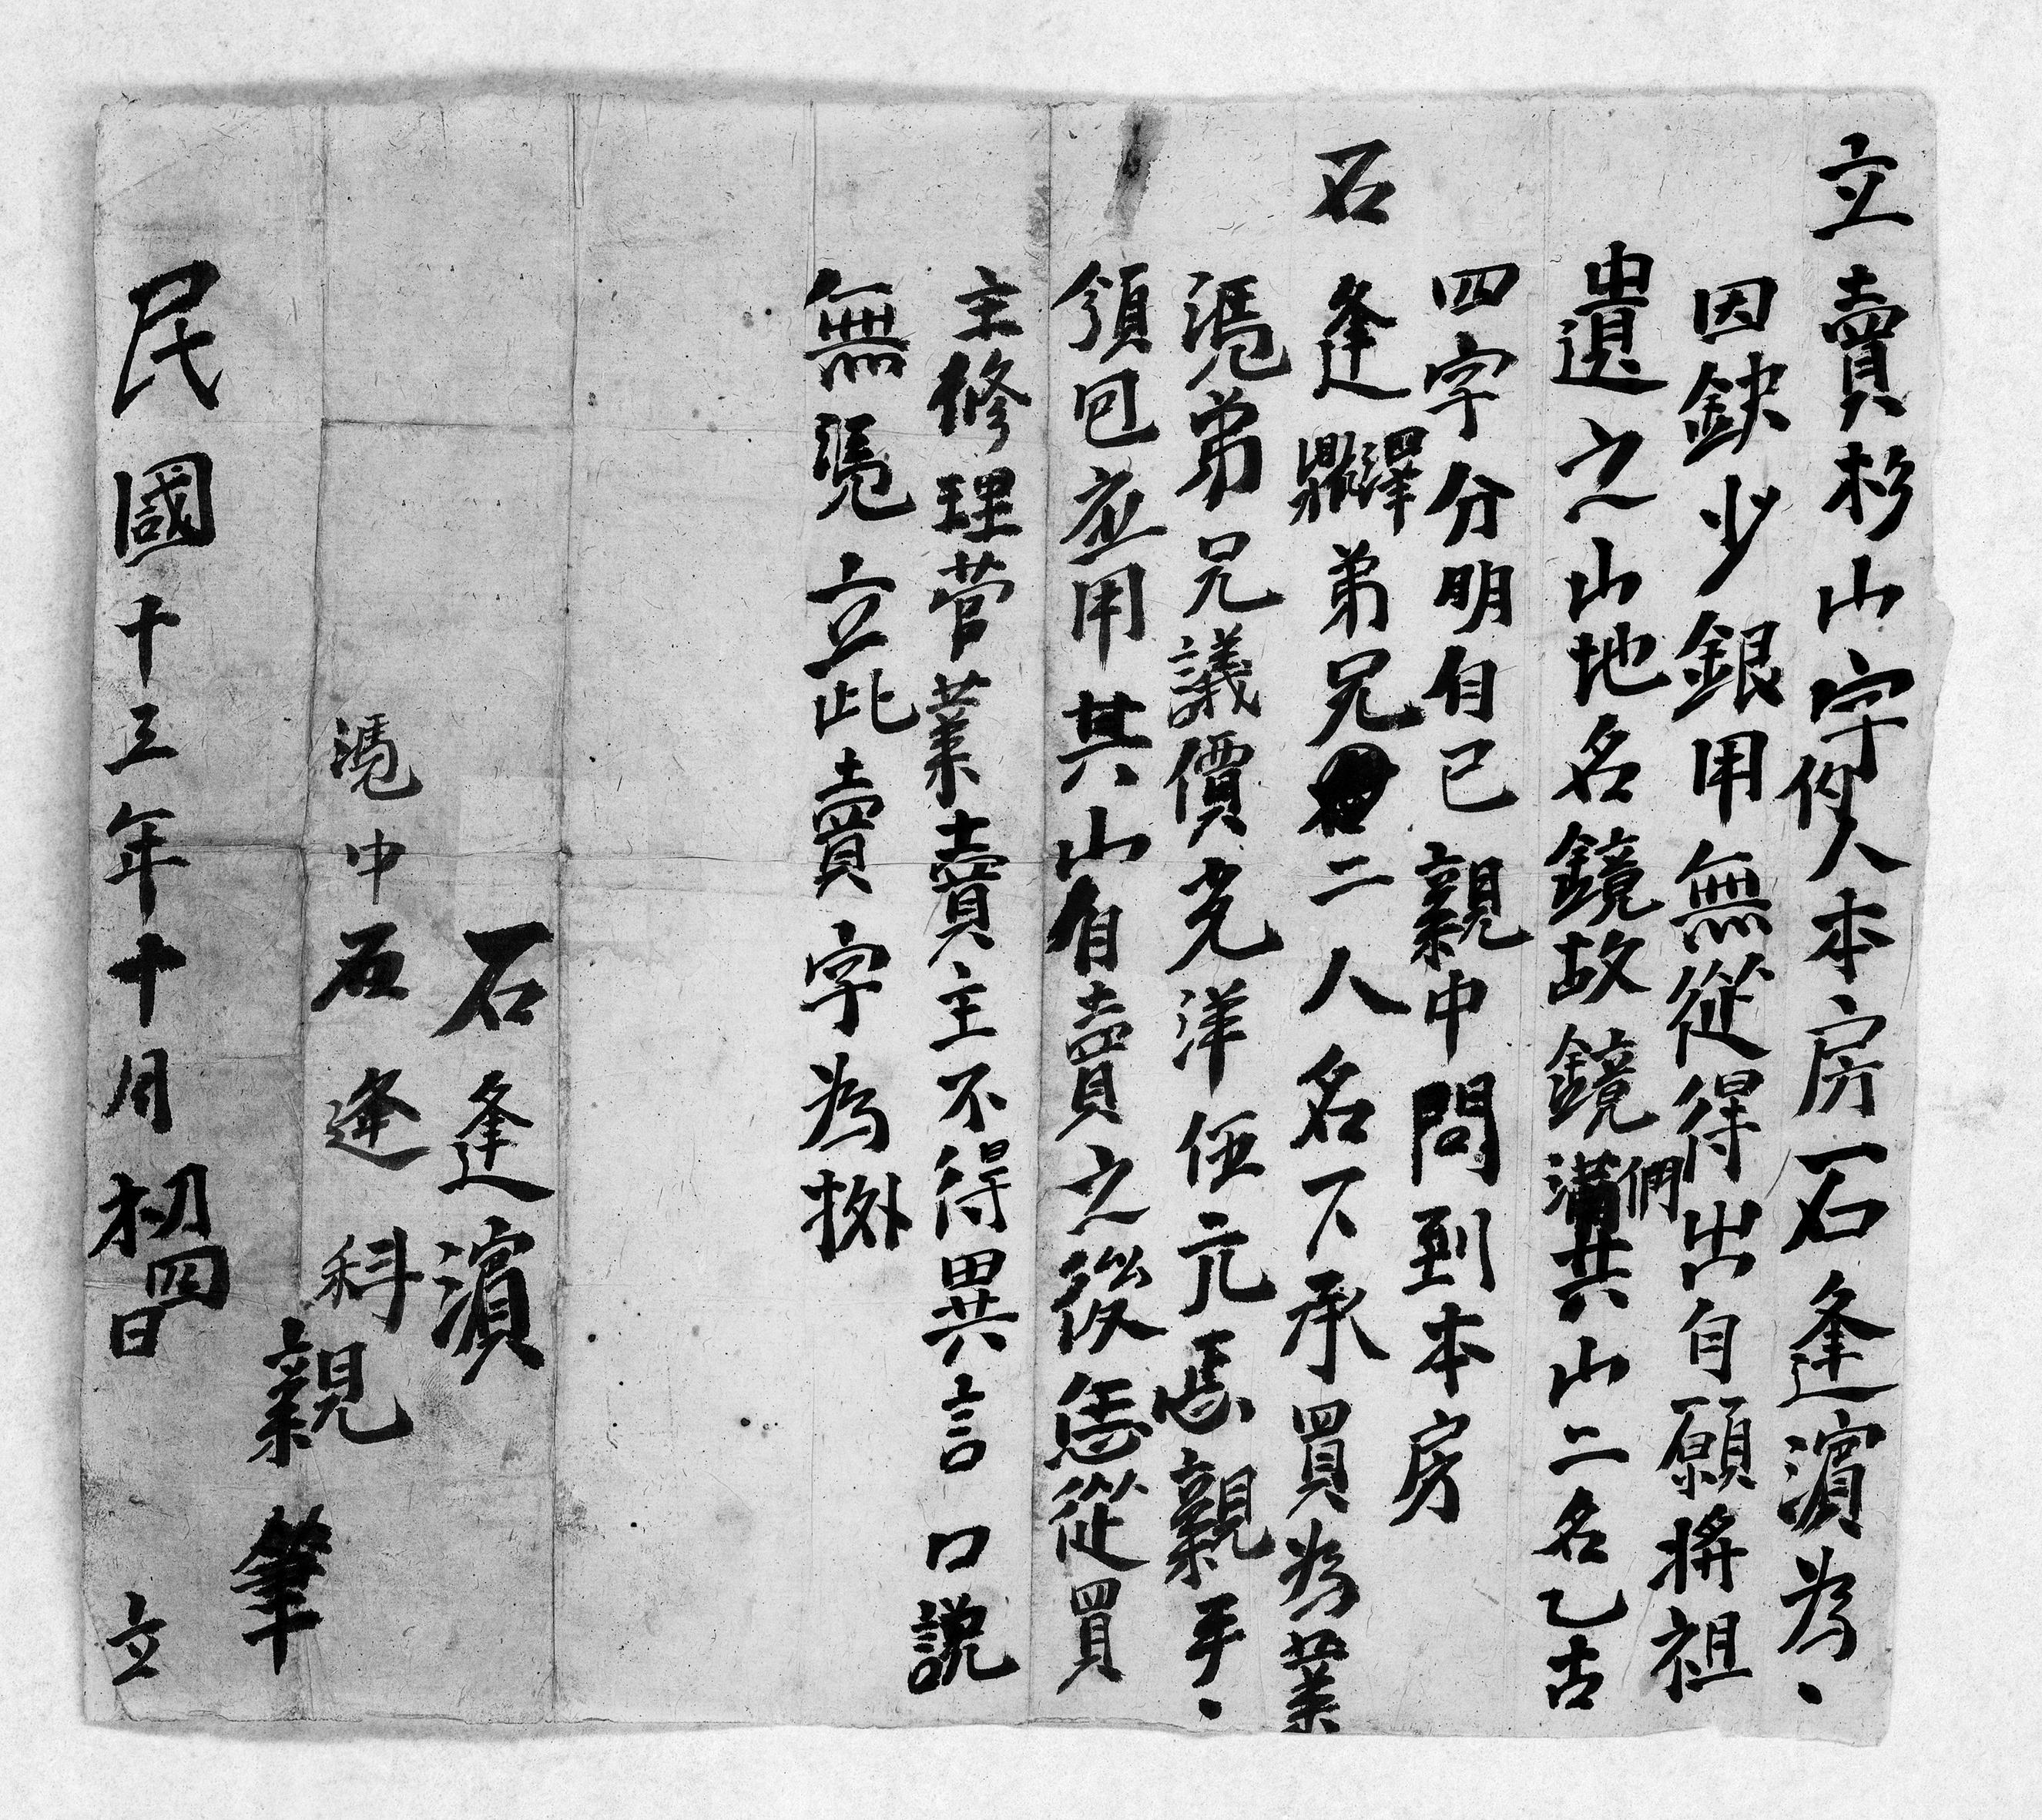 立賣杉山字約人本房石逢濵為、
因缺少銀用無從得出自願將祖
遺之山地名鏡故鏡溝們其山二名乙古
四字分明自己親中問到本房
石逢澤鼎弟兄二人名下承買為業
憑弟兄議價光洋伍元焉親手、
領回應用其山自賣之後恁從買
主修理菅業賣主不得異言口說
無憑立此賣字為拠
石逢濵
憑中石逢科
親筆
民國十三年十月初四日 立